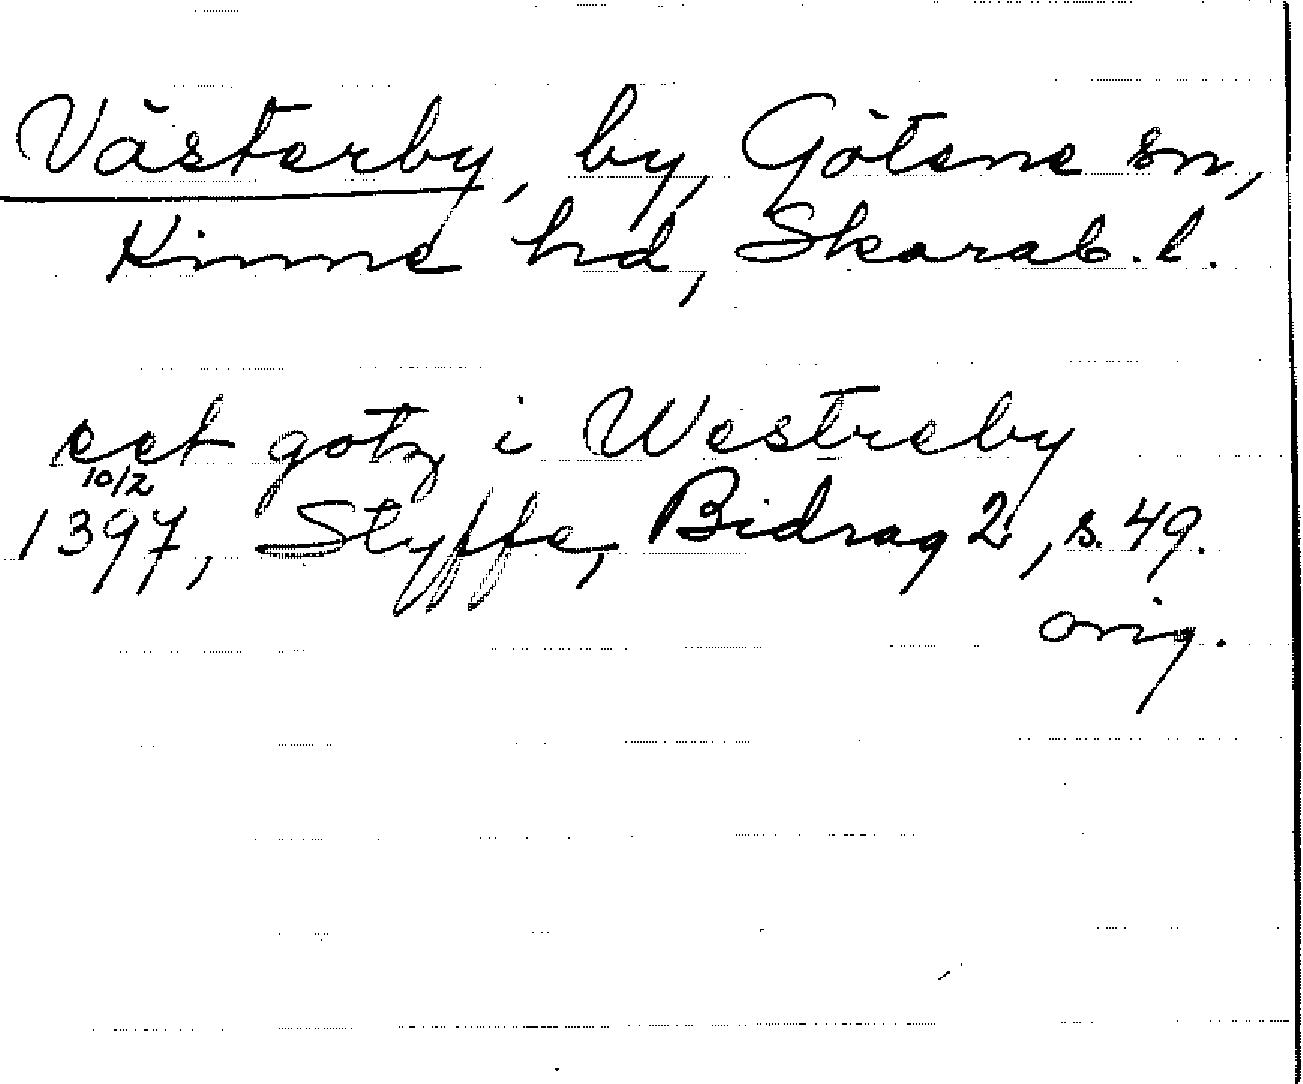 Västerby, by, Götene sn,
Kinne hd, Skarab. l.
eet gotz i Westreby
10/2
1397, Styffe, Bidrag 2, s. 49.
orig.